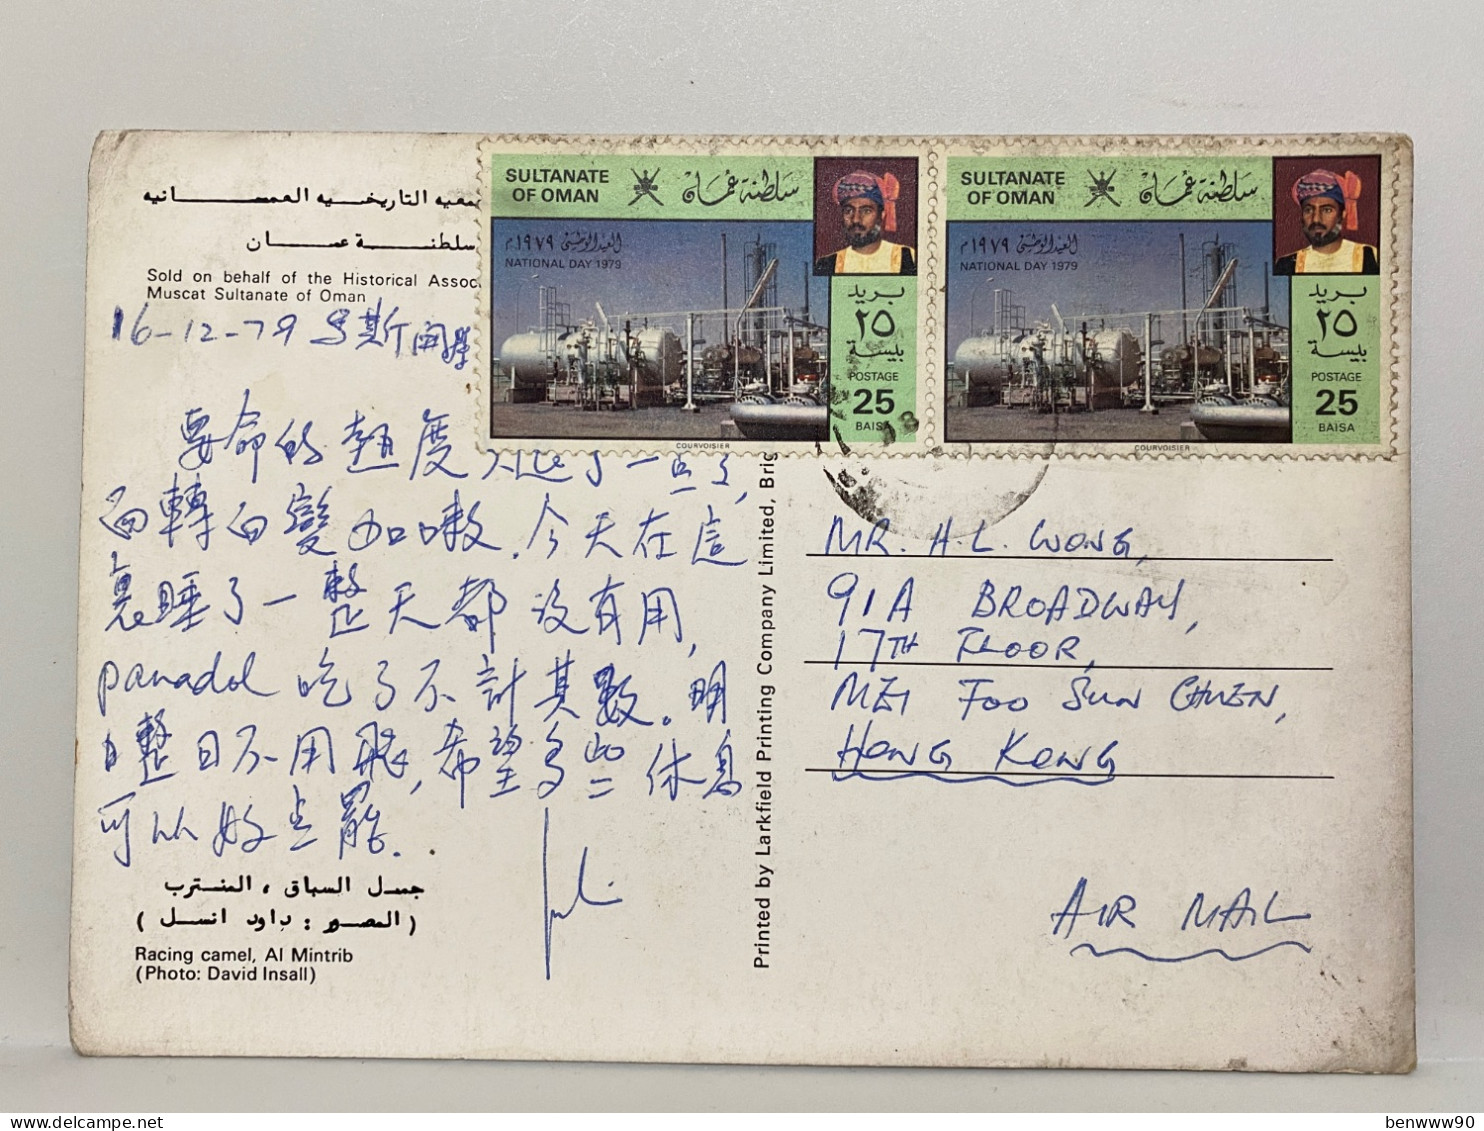 التاريخيه العمانيه
سلطنة عمان
Sold on behalf of the Historical Assoc
Muscat Sultanate of Oman
16-12-79
SULTANATE
OF OMAN
سلطنة عمان
العيد الوطني ١٩٧٩م
NATIONAL DAY 1979
بريد
٢٥
بيسة
POSTAGE
25
BAISA
COURVOISIER
SULTANATE
OF OMAN
سلطنة عمان
العيد الوطني ١٩٧٩م
NATIONAL DAY 1979
بريد
٢٥
بيسة
POSTAGE
25
BAISA
COURVOISIER
要命的熱度 退了一点了,
而轉而變加嗽. 今天在這
裏睡了一整天都沒有用,
panadol 吃了不計其數。明
日整日不用飛, 希望多些休息
可以好点罷.
جمل السباق ، المنترب
( المصور : داود انسل )
Racing camel, Al Mintrib
(Photo: David Insall)
Printed by Larkfield Printing Company Limited, Brig
MR. H.L. WONG,
91A BROADWAY,
17TH FLOOR,
MEI FOO SUN CHUEN,
HONG KONG
AIR MAIL
benwww90